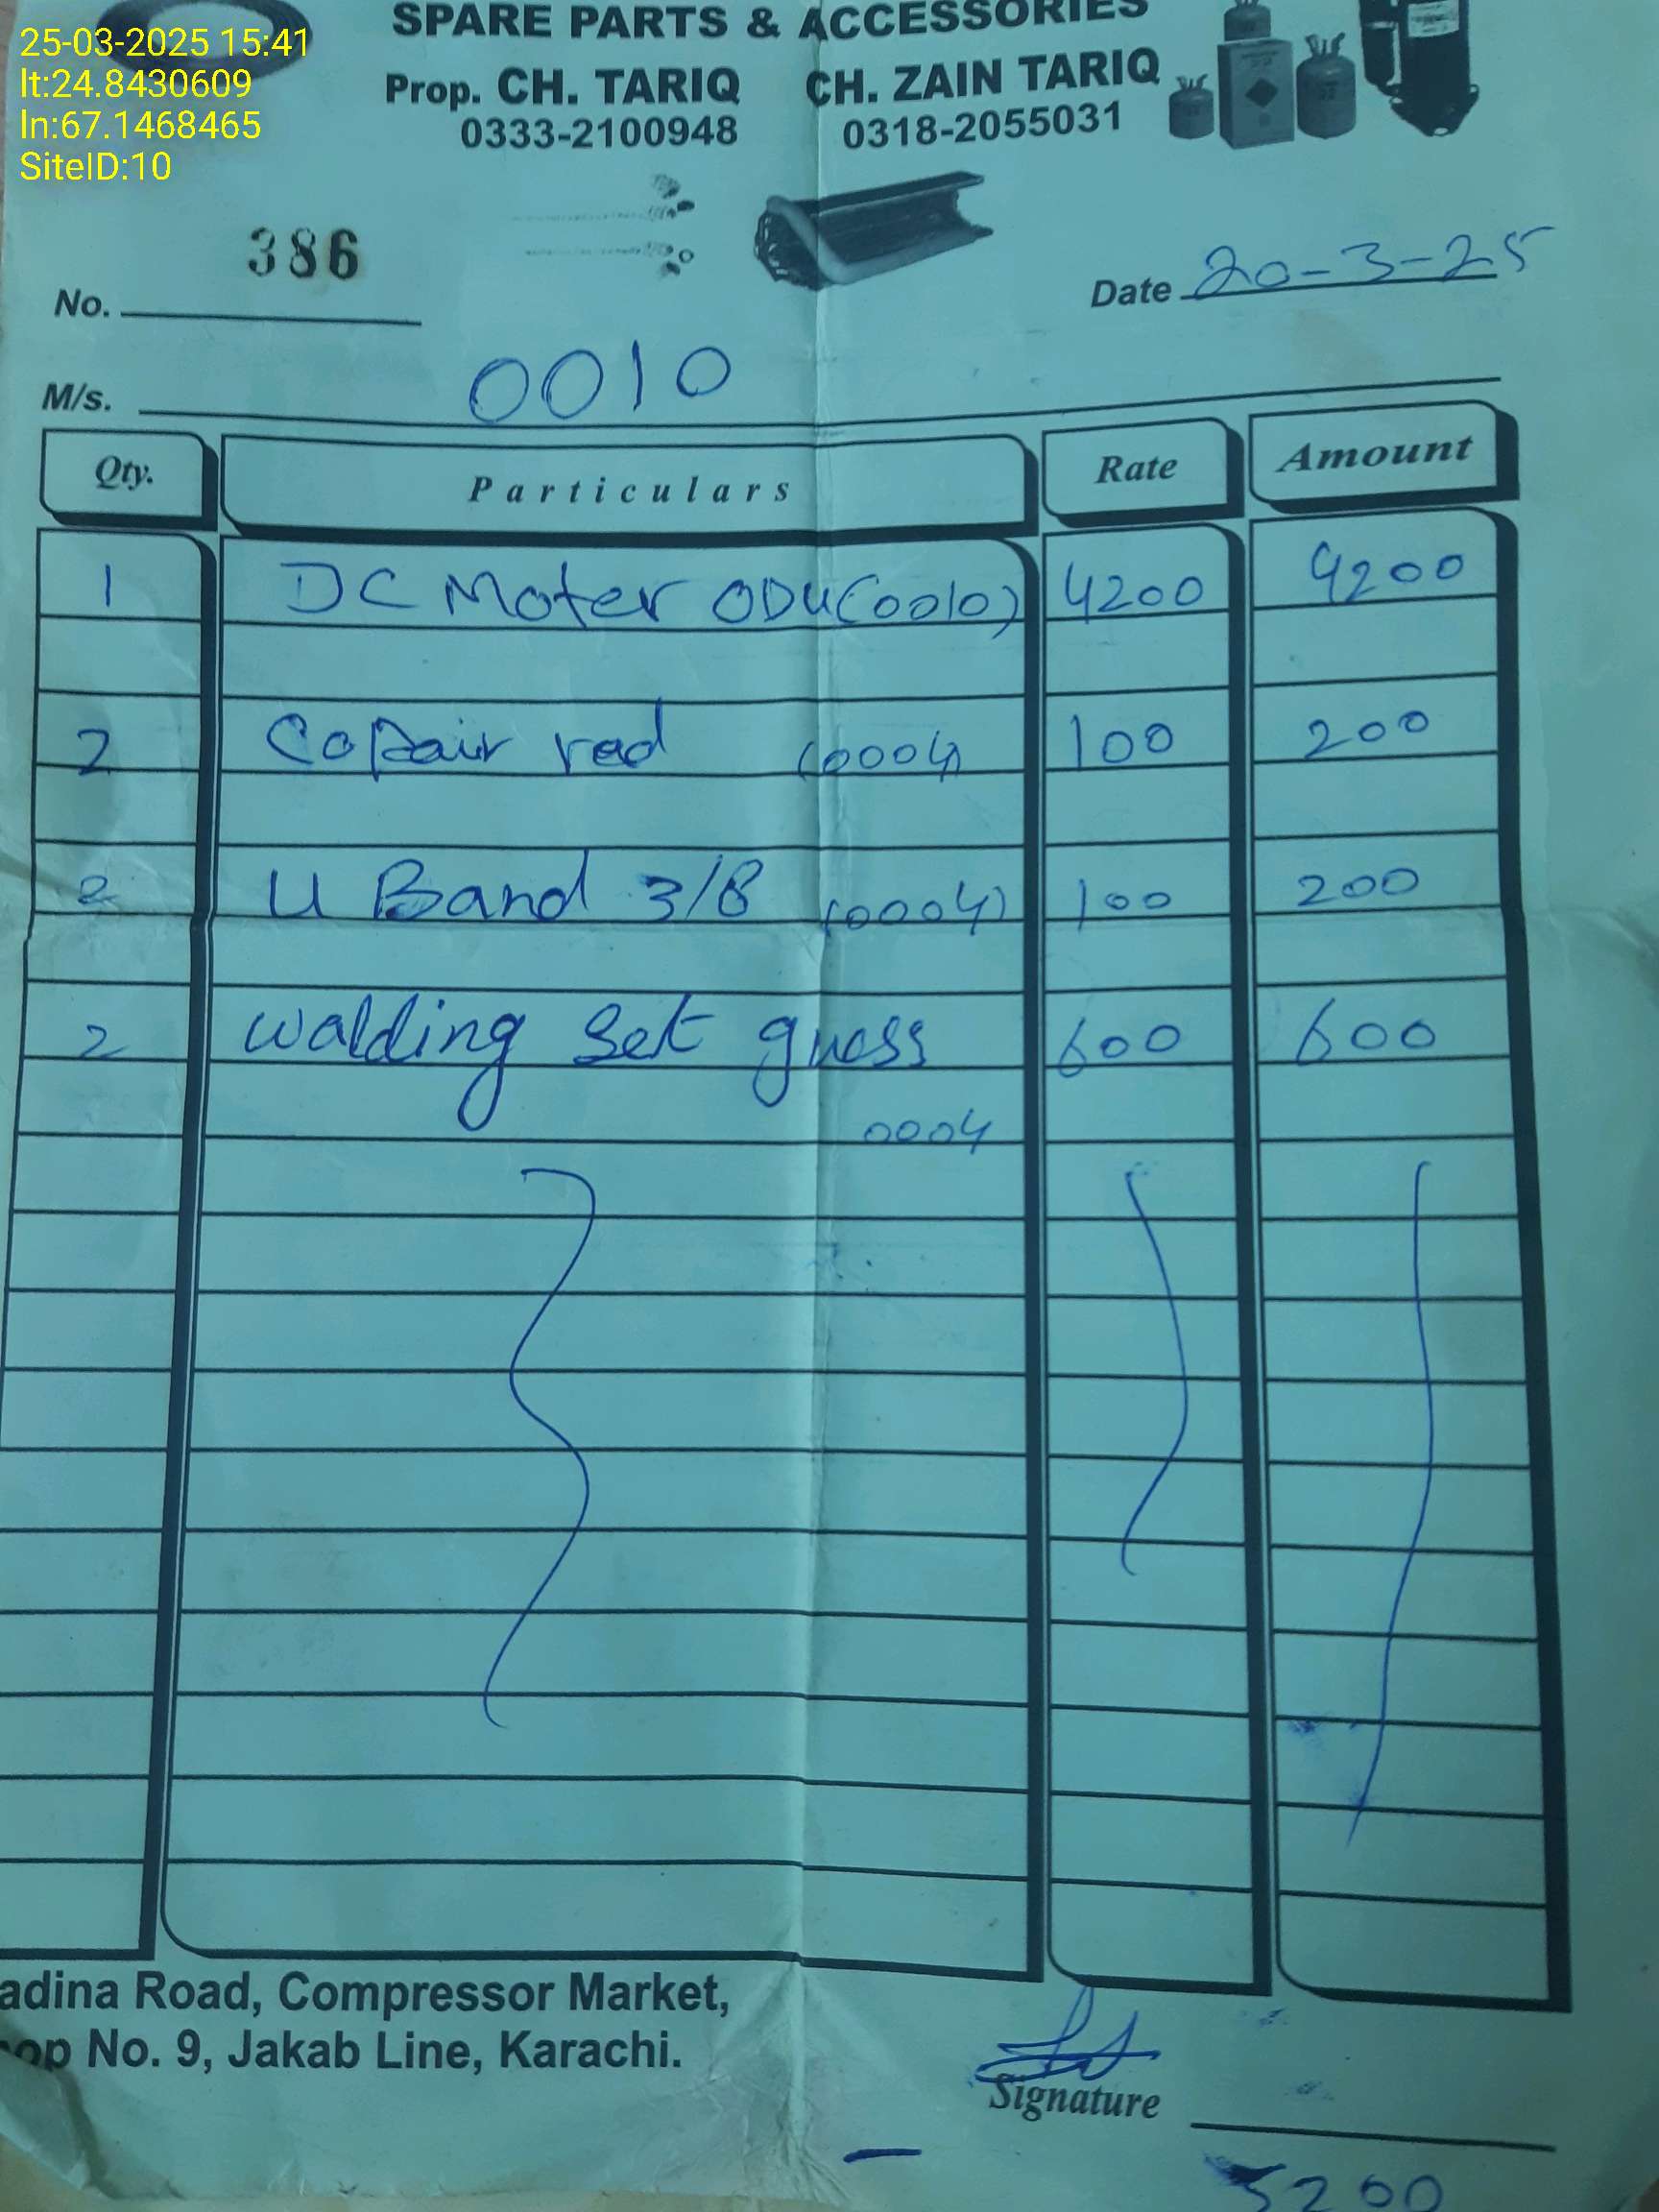 25-03-2025 15:41
lt:24.8430609
ln:67.1468465
SiteID:10
SPARE PARTS & ACCESSORIES
Prop. CH. TARIQ CH. ZAIN TARIQ
0333-2100948 0318-2055031
No. 386
Date 20-3-25
M/s. 0010
Qty. Particulars Rate Amount
1 DC Moter ODU (0010) 4200 4200
2 Copair rad (0004) 100 200
2 U Band 3/8 (0004) 100 200
2 walding Set guess 600 600
0004
adina Road, Compressor Market,
op No. 9, Jakab Line, Karachi.
Signature
5200